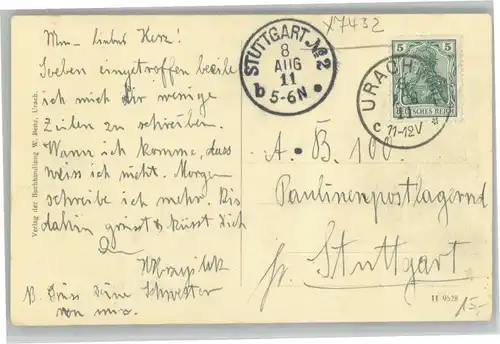 X7432
Mein liebes Herz!
Soeben eingetroffen beeile
ich mich dir wenige
Zeilen zu schreiben.
Wann ich komme, dass
weiss ich nicht. Morgen
schreibe ich mehr. Bis
dahin grüsst & küsst dich
N. Grüss deine Schwester
von mir.
Verlag der Buchhandlung W. Benz, Urach.
STUTTGART. No 2
8
AUG
11
b 5-6N
5
DEUTSCHES REICH
URACH
11
c 11-12V
A. B. 100
Paulinenpostlagernd
Stuttgart
11 9528
15.-